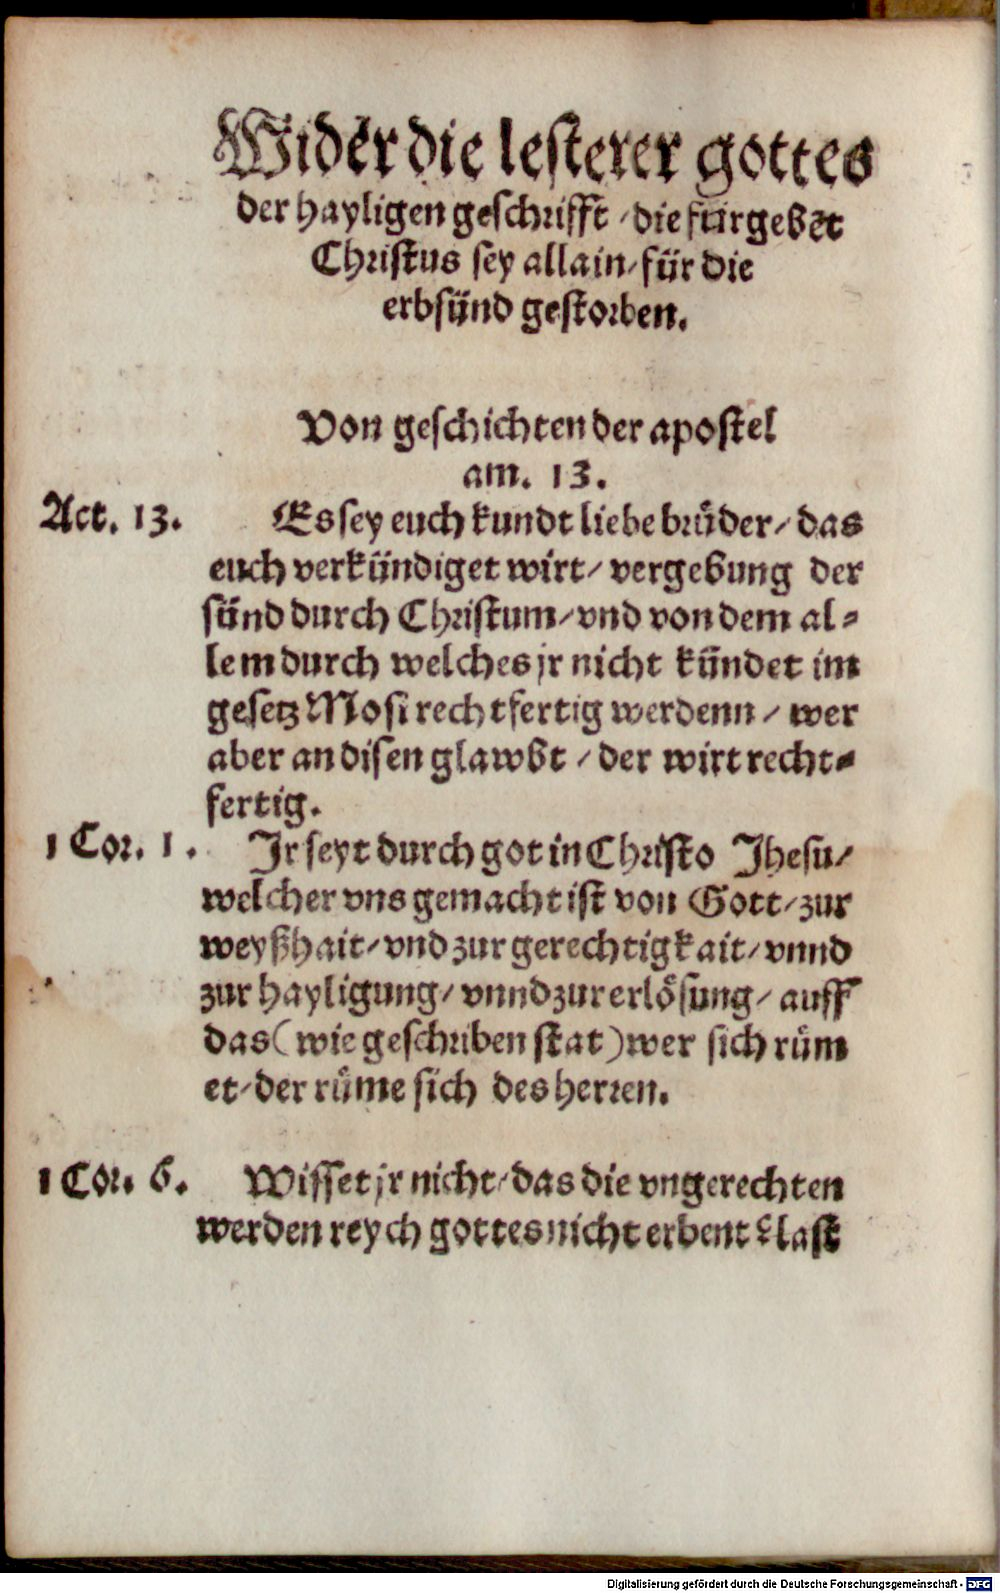 Wider die lesterer gottes
der hayligen geschrifft / die fürgebēt
Christus sey allain / für die
erbsünd gestorben.
Von geschichten der apostel
am. 13.
Act. 13. Es sey euch kundt liebe brůder / das
euch verkündiget wirt / vergebung der
sünd durch Christum / vnd von dem al⸗
lem durch welches jr nicht kündet im
gesetz Mosi rechtfertig werdenn / wer
aber an disen glawbt / der wirt recht⸗
fertig.
1 Cor. 1. Jr seyt durch got in Christo Jhesu /
welcher vns gemacht ist von Gott / zur
weyßhait / vnd zur gerechtigkait / vnnd
zur hayligung / vnnd zur erlösung / auff
das (wie geschriben stat) wer sich rům
et / der růme sich des herren.
1 Cor. 6. Wisset jr nicht / das die vngerechten
werden reych gottes nicht erbent Last
Digitalisierung gefördert durch die Deutsche Forschungsgemeinschaft - DFG